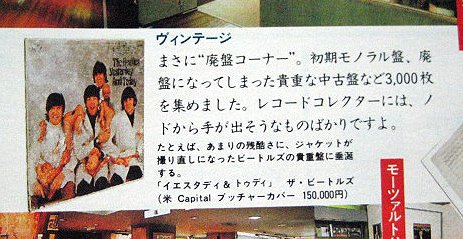 ヴィンテージ
まさに“廃盤コーナー”。初期モノラル盤、廃
盤になってしまった貴重な中古盤など3,000枚
を集めました。レコードコレクターには、ノ
ドから手が出そうなものばかりですよ。
たとえば、あまりの残酷さに、ジャケットが
撮り直しになったビートルズの貴重盤に垂涎
する。
「イエスタディ& トゥディ」 ザ・ビートルズ
(米 Capital ブッチャーカバー 150,000円)
The Beatles
Yesterday
And Today
モーツァルト